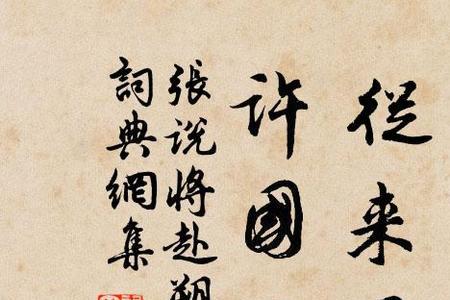 從来
許國
張說將赴朔
詞典網集